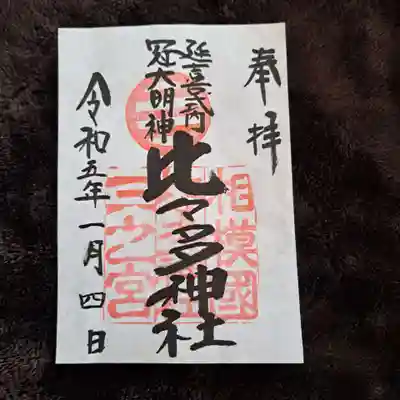 奉拝
延喜式内
冠大明神
比々多神社
令和五年一月四日
相模國
三之宮